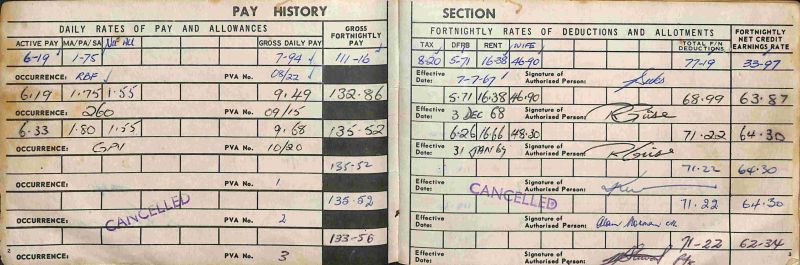 PAY HISTORY SECTION
DAILY RATES OF PAY AND ALLOWANCES GROSS FORTNIGHTLY PAY
ACTIVE PAY MA/PA/SA GROSS DAILY PAY
6-19 1-75 7-94 111-16
OCCURRENCE: RBF PVA No. 08/22
6.19 1.75 1.55 9.49 132.86
OCCURRENCE: 260 PVA No. 09/15
6.33 1.80 1.55 9.68 135-52
OCCURRENCE: GPI PVA No. 10/20
135-52
OCCURRENCE: PVA No. 1
135-52
CANCELLED
OCCURRENCE: PVA No. 2
133-56
OCCURRENCE: PVA No. 3
2
FORTNIGHTLY RATES OF DEDUCTIONS AND ALLOTMENTS FORTNIGHTLY NET CREDIT EARNINGS RATE
TAX DFRB RENT WIFE TOTAL F/N DEDUCTIONS
8-20 5-71 16-38 46-90 77-19 33-97
Effective Date: 7-7-67 Signature of Authorised Person:
5.71 16.38 46.90 68.99 63.87
Effective Date: 3 DEC 68 Signature of Authorised Person:
6.26 16.66 48.30 71.22 64.30
Effective Date: 31 JAN 69 Signature of Authorised Person:
71.22 64.30
Effective Date: Signature of Authorised Person:
CANCELLED
71.22 64.30
Effective Date: Signature of Authorised Person:
71-22 62-34
Effective Date: Signature of Authorised Person:
3